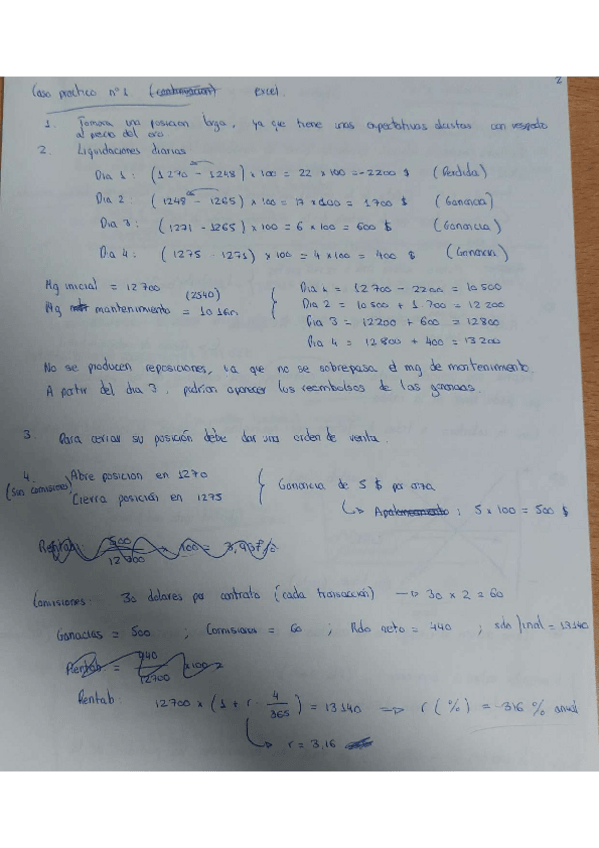 2
Caso practico nº 1 (continuación) excel.
1. Tomara una posicion larga, ya que tiene unas expectativas alcistas con respecto
al precio del oro
2. Liquidaciones diarias
Dia 1 : (1270 - 1248) x 100 = 22 x 100 = -2200 $ (Perdida)
Dia 2 : (1248 - 1265) x 100 = 17 x 100 = 1700 $ (Ganancia)
Dia 3 : (1271 - 1265) x 100 = 6 x 100 = 600 $ (Ganancia)
Dia 4 : (1275 - 1271) x 100 = 4 x 100 = 400 $ (Ganancia)
Mg inicial = 12 700
(2540)
Mg mantenimiento = 10 160
Dia 1 = 12 700 - 2200 = 10 500
Dia 2 = 10 500 + 1.700 = 12 200
Dia 3 = 12200 + 600 = 12800
Dia 4 = 12 800 + 400 = 13 200
No se producen reposiciones, ya que no se sobrepasa el mg de mantenimiento.
A partir del dia 3, podrian aparecer los reembolsos de las ganancias.
3. Para cerrar su posición debe dar una orden de venta.
4. Abre posicion en 1270
(sin comisiones) Cierra posición en 1275
Ganancia de 5 $ por onza
↳ Apalancamiento : 5 x 100 = 500 $
Rentab: 500 / 12 700 x 100 = 3,937%
Comisiones: 30 dolares por contrato (cada transacción) → 30 x 2 = 60
Ganacias = 500 ; Comisiones = 60 ; Rdo neto = 440 ; sdo final = 13140
Rentab = 440 / 12700 x 100 =
Rentab: 12 700 x (1 + r · 4/365) = 13 140 => r (%) = 316 % anual
↳ r = 3,16